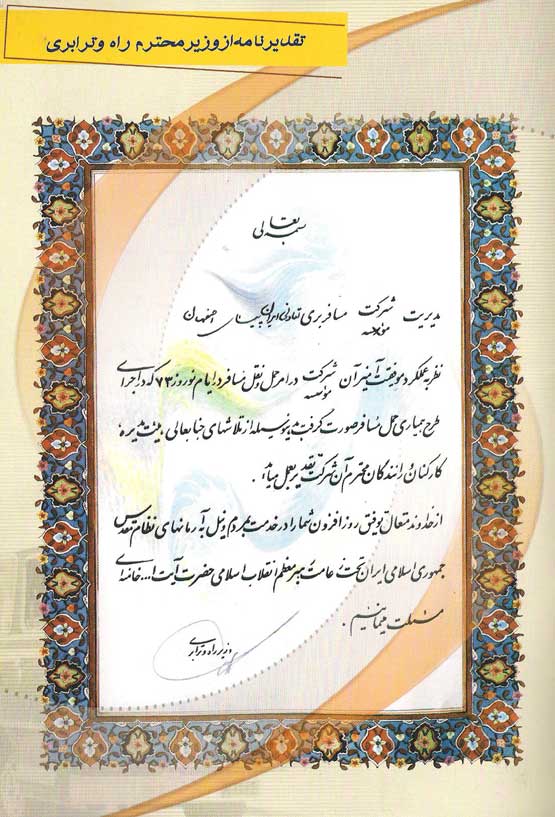 تقدیرنامه از وزیر محترم راه وترابری
بسمه تعالی
مدیریت شرکت مؤسسه مسافربری تعاونی ایران پیما اصفهان
نظر به عملکرد موفقیت آمیز آن شرکت مؤسسه در امر حمل و نقل مسافر در ایام نوروز ۷۳ که در اجرای
طرح بسیاری حمل مسافر صورت گرفت بدینوسیله از تلاشهای جنابعالی، هیئت مدیره،
کارکنان و رانندگان محترم آن شرکت تقدیر بعمل میاید.
از خداوند متعال توفیق روز افزون شما را در خدمت بمردم و نیل به آرمانهای نظام مقدس
جمهوری اسلامی ایران تحت زعامت رهبر معظم انقلاب اسلامی حضرت آیت ا... خامنه ای
مسئلت مینمائیم.
وزیر راه و ترابری